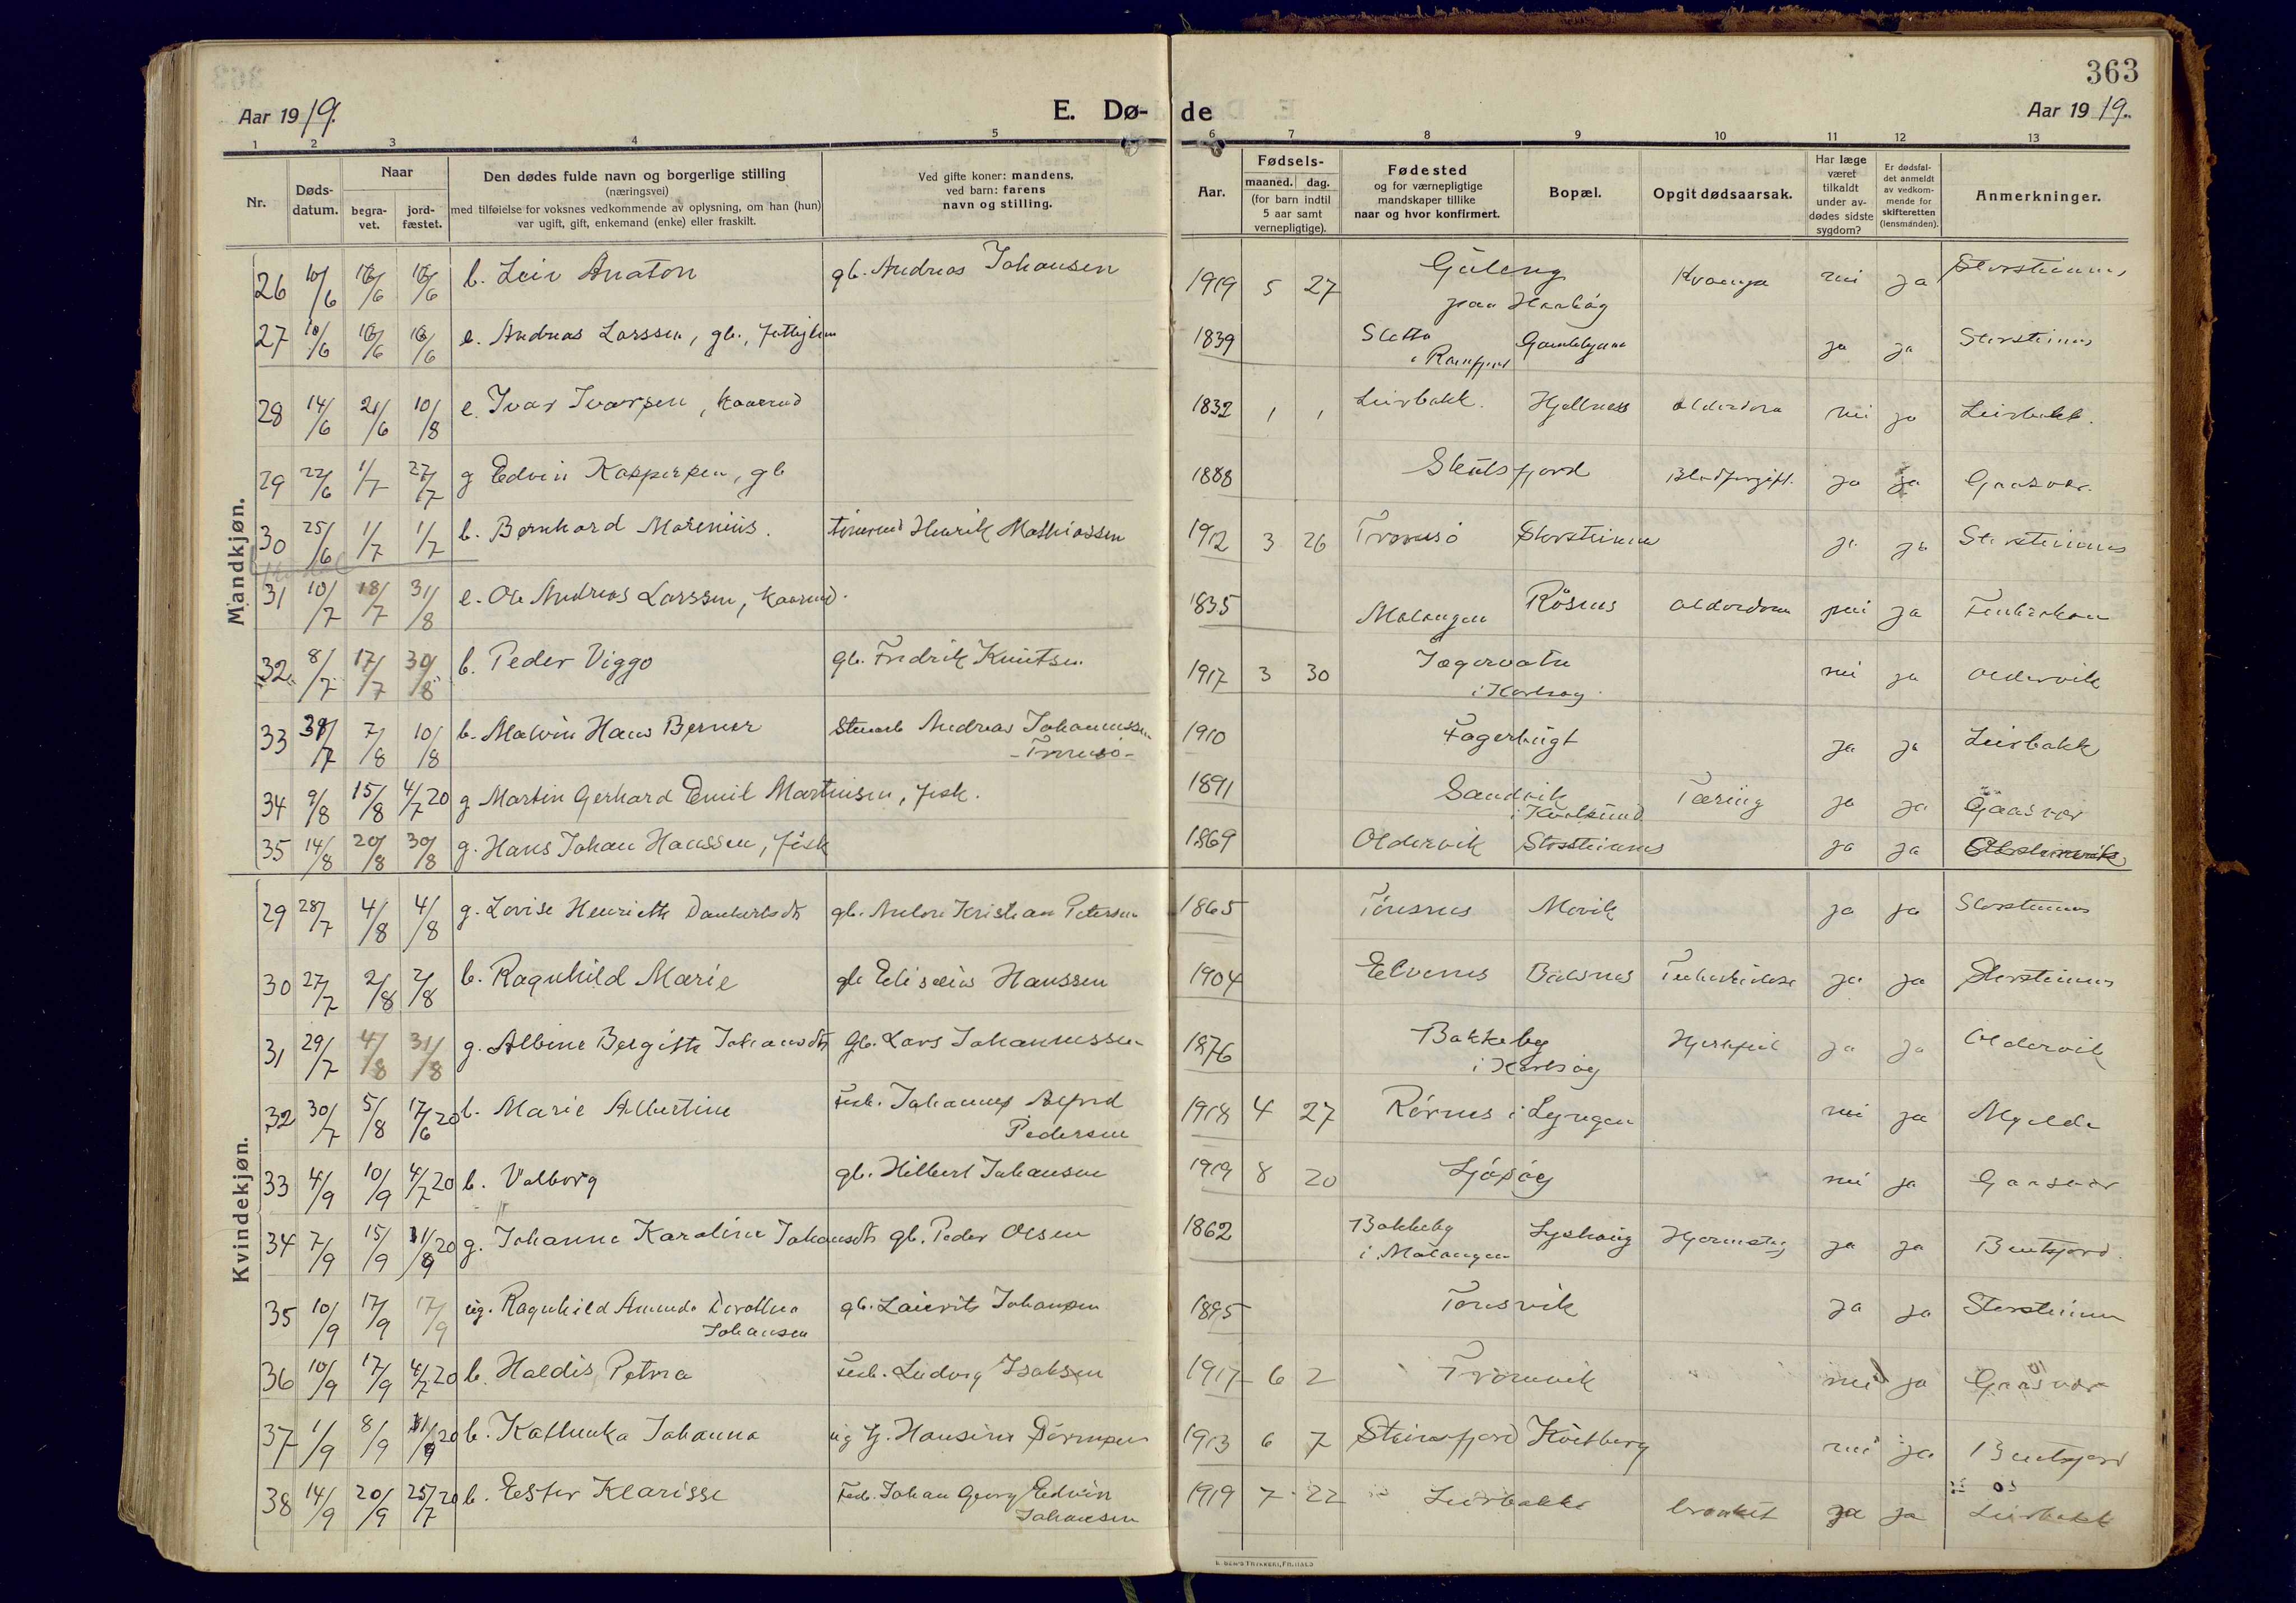 363
Aar 1919.
E. Dø-
de
Aar 1919.
1 2 3 4 5 6 7 8 9 10 11 12 13
Nr.
Døds-
datum.
Naar
begra-
vet.
jord-
fæstet.
Den dødes fulde navn og borgerlige stilling
(næringsvei)
med tilføielse for voksnes vedkommende av oplysning, om han (hun)
var ugift, gift, enkemand (enke) eller fraskilt.
Ved gifte koner: mandens,
ved barn: farens
navn og stilling.
Aar.
Fødsels-
maaned. dag.
(for barn indtil
5 aar samt
vernepligtige).
Fødested
og for værnepligtige
mandskaper tillike
naar og hvor konfirmert.
Bopæl.
Opgit dødsaarsak.
Har læge
været
tilkaldt
under av-
dødes sidste
sygdom?
Er dødsfal-
det anmeldt
av vedkom-
mende for
skifteretten
(lensmanden).
Anmerkninger.
Mandkjøn.
26 10/6 16/6 16/6 b. Leiv Anaton gb. Andreas Johansen 1919 5 27 Gúleng
paa Haakøy nei ja Storsteinnes
27 10/6 16/6 16/6 e. Andreas Larssen, gb., 1839 Sletta
i Ramfjord ja ja Storsteinnes
28 14/6 21/6 10/8 e. Ivar Ivarsen, kaarmd 1832 1 1 Leirbakk. Hjellness alderdom nei ja Leirbakk.
29 22/6 1/7 27/7 g Edvin Kaspersen, gb 1888 Skulsfjord Blodforgift. ja ja Gaasvær.
30 25/6 1/7 1/7 b. Bernhard Marenius. tømmermd Henrik Mathiassen 1912 3 26 Tromsø Storsteinnes ja ja Storsteinnes
31 10/7 18/7 31/8 e. Ole Andreas Larssen, kaarmd. 1835 Malangen Røsnes alderdom nei ja
32 8/7 17/7 30/8 b. Peder Viggo gb. Fredrik Knutsen 1917 3 30 Jægervatn
i Karlsøy nei ja Oldervik
33 31/7 7/8 10/8 b. Malvin Hans Berner Andreas Johannessen
- Tromsø - 1910 Fagerbugt ja ja Leirbakk
34 9/8 15/8 4/7 20 g Martin Gerhard Emil Martinsen, fisk. 1891 Sandvik
i Kvalsund Tæring ja ja Gaasvær
35 14/8 20/8 30/8 g. Hans Johan Hanssen, fisk 1869 Oldervik Storsteinnes ja ja
Kvindekjøn.
29 28/7 4/8 4/8 g. Lovise Henriette Dankertsdt gb. Anton Kristian Petersen 1865 Tønsnes Movik ja ja Storsteinnes
30 27/7 2/8 2/8 b. Ragnhild Marie gb Elisæus Hanssen 1904 Elvenes Balsnes Tuberkulose ja ja Storsteinnes
31 29/7 4/8 31/8 g. Albine Bergitte Johansdt gb. Lars Johannessen 1876 Bakkeby
i Karlsøy Hjertefeil ja ja Oldervik
32 30/7 5/8 17/6 20 b. Marie Albertine fisk. Johannes Alfred
Pedersen 1918 4 27 Rørnes i Lyngen nei ja Mjelde
33 4/9 10/9 4/7 20 b. Valborg gb. Hilbert Johansen 1919 8 20 Sjøsøy nei ja Gaasvær
34 7/9 15/9 g. Johanna Karoline Johansdt gb. Peder Olsen 1862 Bakkeby
i Malangen Lyshaug Hjerneslag ja ja Bentsjord.
35 10/9 17/9 17/9 ug. Ragnhild Amanda Dorothea
Johansen gb. Laurits Johansen 1895 Tonsvik ja ja Storsteinnes
36 10/9 17/9 4/7 20 b. Haldis Petra fisk. Ludvig Isaksen 1917 6 2 Tromvik nei ja Gaasvær
37 1/9 8/9 b. Kathinka Johanna ug tj. Hansine Sørensen 1913 6 7 Steinsfjord Kvitberg nei ja Bentsjord
38 14/9 20/9 25/7 20 b. Ester Klarisse Fisk. Johan Georg Edvin
Johansen 1919 7 22 Leirbakke bronkit ja ja Leirbakk